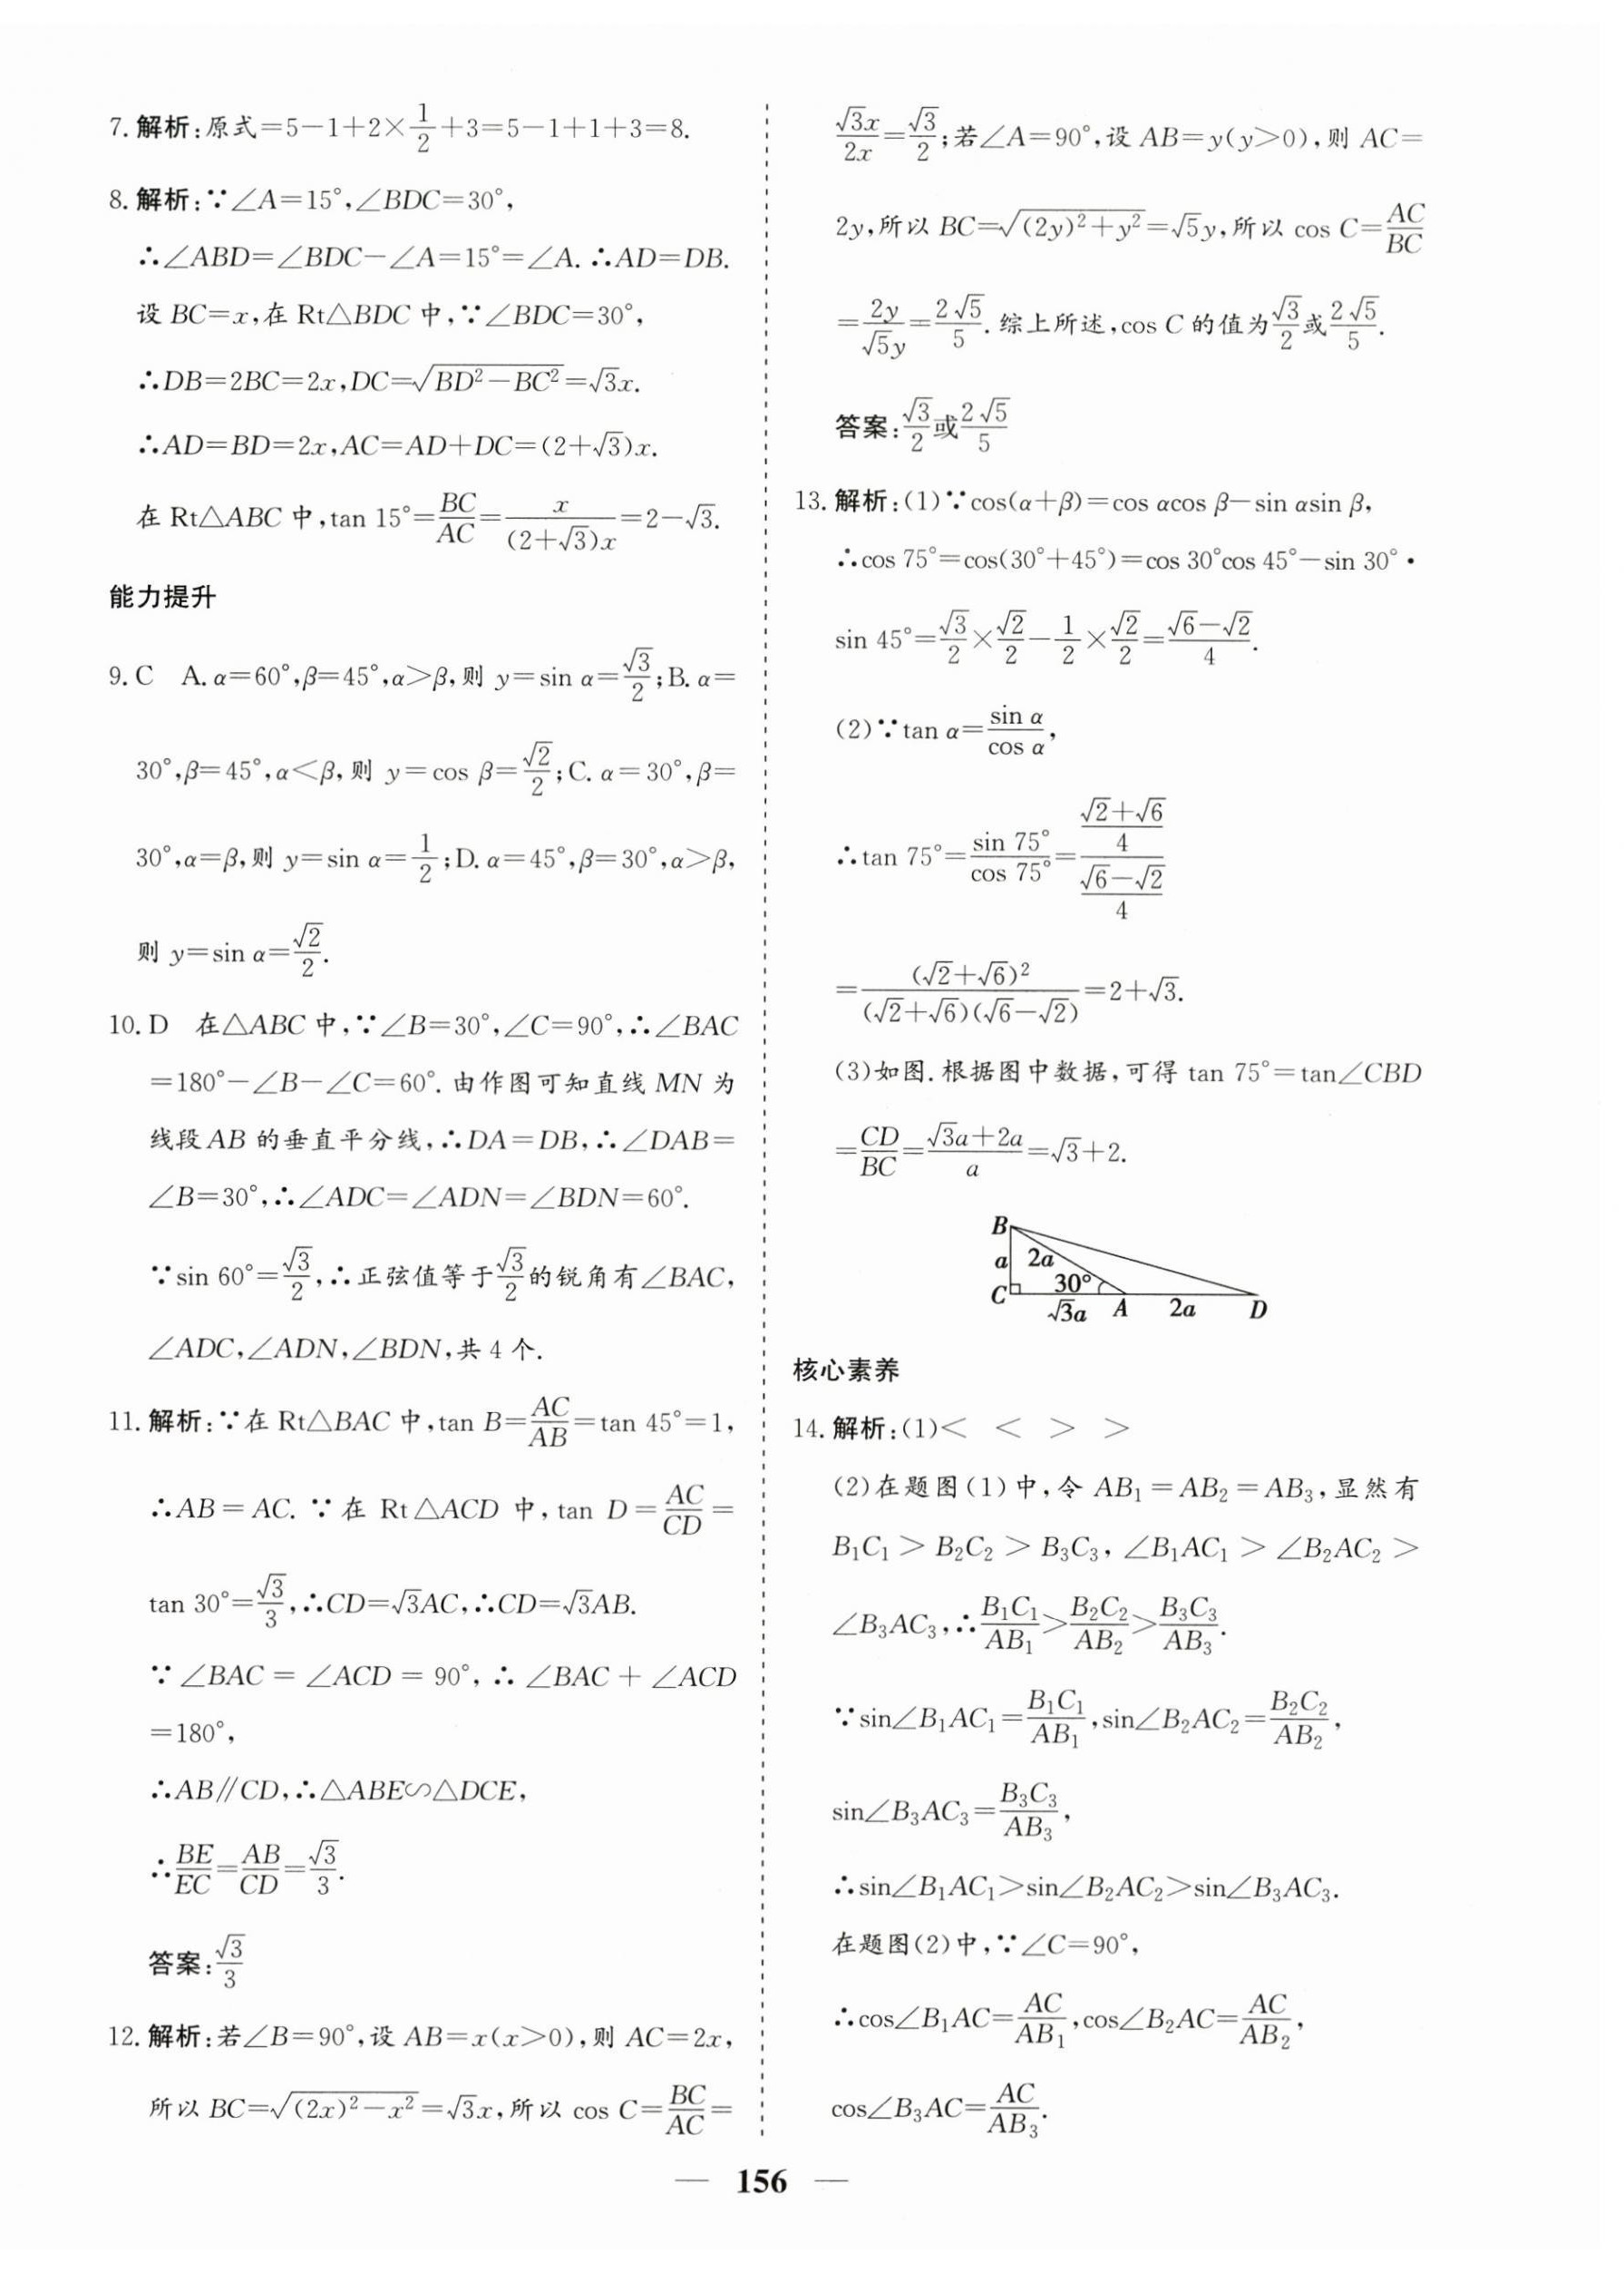 7. 解析:原式=5-1+2×1/2+3=5-1+1+3=8.
8. 解析:∵∠A=15°,∠BDC=30°,
∴∠ABD=∠BDC-∠A=15°=∠A. ∴AD=DB.
设 BC=x,在 Rt△BDC 中,∵∠BDC=30°,
∴DB=2BC=2x,DC=√(BD²-BC²)=√3x.
∴AD=BD=2x,AC=AD+DC=(2+√3)x.
在 Rt△ABC 中,tan 15°=BC/AC=x/((2+√3)x)=2-√3.
能力提升
9. C A. α=60°,β=45°,α>β,则 y=sin α=√3/2;B. α=
30°,β=45°,α<β,则 y=cos β=√2/2;C. α=30°,β=
30°,α=β,则 y=sin α=1/2;D. α=45°,β=30°,α>β,
则 y=sin α=√2/2.
10. D 在△ABC 中,∵∠B=30°,∠C=90°,∴∠BAC
=180°-∠B-∠C=60°. 由作图可知直线 MN 为
线段 AB 的垂直平分线,∴DA=DB,∴∠DAB=
∠B=30°,∴∠ADC=∠ADN=∠BDN=60°.
∵sin 60°=√3/2,∴正弦值等于√3/2的锐角有∠BAC,
∠ADC,∠ADN,∠BDN,共 4 个.
11. 解析:∵在 Rt△BAC 中,tan B=AC/AB=tan 45°=1,
∴AB=AC. ∵在 Rt△ACD 中,tan D=AC/CD=
tan 30°=√3/3,∴CD=√3AC,∴CD=√3AB.
∵∠BAC=∠ACD=90°,∴∠BAC+∠ACD
=180°,
∴AB∥CD,∴△ABE∽△DCE,
∴BE/EC=AB/CD=√3/3.
答案:√3/3
12. 解析:若∠B=90°,设 AB=x(x>0),则 AC=2x,
所以 BC=√((2x)²-x²)=√3x,所以 cos C=BC/AC=
√3x/2x=√3/2;若∠A=90°,设 AB=y(y>0),则 AC=
2y,所以 BC=√((2y)²+y²)=√5y,所以 cos C=AC/BC
=2y/√5y=2√5/5. 综上所述,cos C 的值为√3/2或2√5/5.
答案:√3/2或2√5/5
13. 解析:(1)∵cos(α+β)=cos αcos β-sin αsin β,
∴cos 75°=cos(30°+45°)=cos 30°cos 45°-sin 30°·
sin 45°=√3/2×√2/2-1/2×√2/2=(√6-√2)/4.
(2)∵tan α=sin α/cos α,
∴tan 75°=sin 75°/cos 75°=((√2+√6)/4)/((√6-√2)/4)
=(√2+√6)²/((√2+√6)(√6-√2))=2+√3.
(3)如图. 根据图中数据,可得 tan 75°=tan∠CBD
=CD/BC=(√3a+2a)/a=√3+2.
B
a 2a
C 30°
√3a A 2a D
核心素养
14. 解析:(1)< < > >
(2)在题图(1)中,令 AB₁=AB₂=AB₃,显然有
B₁C₁>B₂C₂>B₃C₃,∠B₁AC₁>∠B₂AC₂>
∠B₃AC₃,∴B₁C₁/AB₁>B₂C₂/AB₂>B₃C₃/AB₃.
∵sin∠B₁AC₁=B₁C₁/AB₁,sin∠B₂AC₂=B₂C₂/AB₂,
sin∠B₃AC₃=B₃C₃/AB₃,
∴sin∠B₁AC₁>sin∠B₂AC₂>sin∠B₃AC₃.
在题图(2)中,∵∠C=90°,
∴cos∠B₁AC=AC/AB₁,cos∠B₂AC=AC/AB₂,
cos∠B₃AC=AC/AB₃.
— 156 —